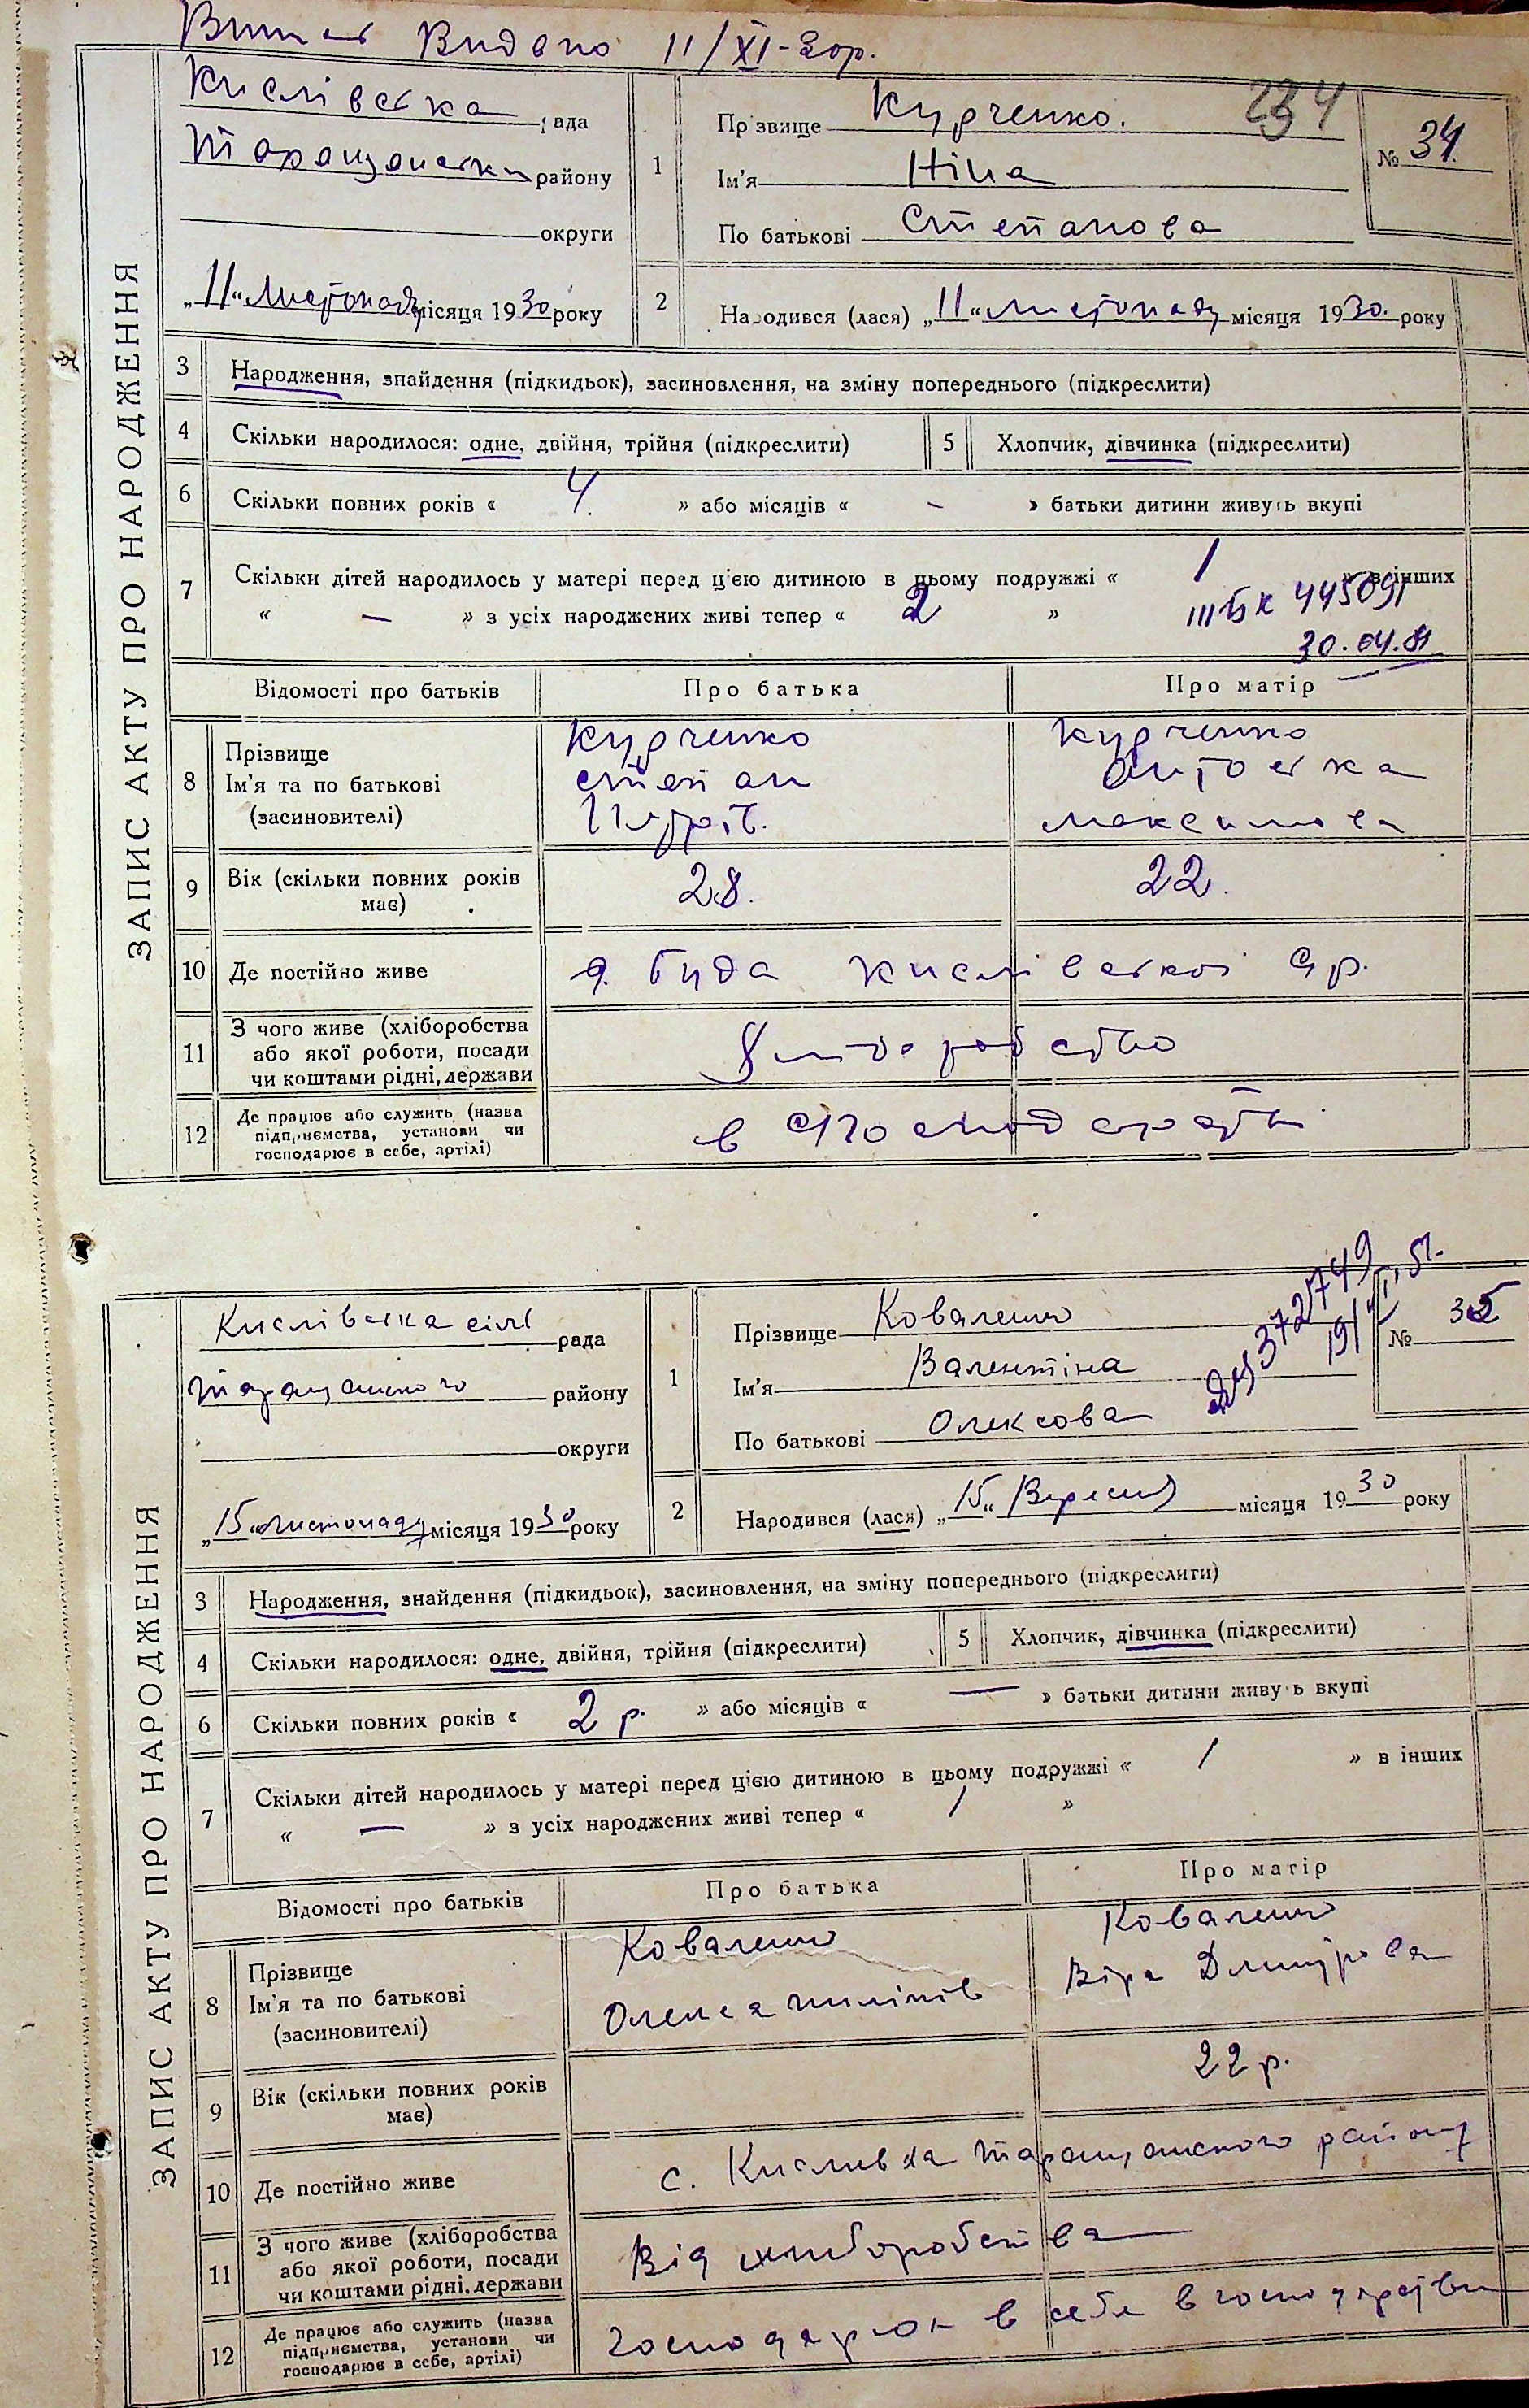 Видано 11/XI-30р.
ЗАПИС АКТУ ПРО НАРОДЖЕННЯ
Кислівська рада
Таращанськ району
округи
„11“ Листопаду місяця 1930 року
1
Прізвище Курченко. 234
Ім'я Ніна
По батькові Степанова
№ 34.
2
Народився (лася) „11“ листопаду місяця 1930. року
3 Народження, знайдення (підкидьок), засиновлення, на зміну попереднього (підкреслити)
4 Скільки народилося: одне, двійня, трійня (підкреслити)
5 Хлопчик, дівчинка (підкреслити)
6 Скільки повних років « 4. » або місяців « – » батьки дитини живуть вкупі
7 Скільки дітей народилось у матері перед цією дитиною в цьому подружжі « 1 » в інших
« — » з усіх народжених живі тепер « 2 »
III БК 445091
30.04.81
Відомості про батьків Про батька Про матір
8 Прізвище
Ім'я та по батькові
(засиновителі)
Курченко
степан
Курченко
максимова
9 Вік (скільки повних років має) 28. 22.
10 Де постійно живе Буда кислівської
11 З чого живе (хліборобства
або якої роботи, посади
чи коштами рідні, держави
12 Де працює або служить (назва
підприємства, установи чи
господарює в себе, артілі)
в
ЗАПИС АКТУ ПРО НАРОДЖЕННЯ
Кислівська сіль рада
Таращанского району
округи
„15“ листопаду місяця 1930 року
1
Прізвище Коваленко
Ім'я Валентіна
По батькові Олексова
372749
№ 35
2
Народився (лася) „15“ Вересня місяця 1930 року
3 Народження, знайдення (підкидьок), засиновлення, на зміну попереднього (підкреслити)
4 Скільки народилося: одне, двійня, трійня (підкреслити)
5 Хлопчик, дівчинка (підкреслити)
6 Скільки повних років « 2 р. » або місяців « — » батьки дитини живуть вкупі
7 Скільки дітей народилось у матері перед цією дитиною в цьому подружжі « 1 » в інших
« — » з усіх народжених живі тепер « 1 »
Відомості про батьків Про батька Про матір
8 Прізвище
Ім'я та по батькові
(засиновителі)
Коваленко
Олекса
Коваленко
Віра Дмитрова
9 Вік (скільки повних років має) 22 р.
10 Де постійно живе с. Кисливка Таращанского району
11 З чого живе (хліборобства
або якої роботи, посади
чи коштами рідні, держави
Від хлиборобства
12 Де працює або служить (назва
підприємства, установи чи
господарює в себе, артілі)
в себе в